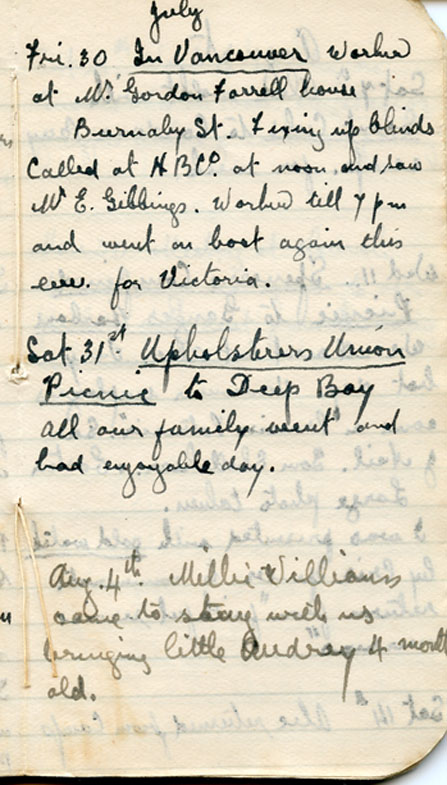 July
Fri. 30 In Vancouver Worked
at Mr Gordon Farrell house
Burnaby St. Fixing up blinds
Called at H B Co. at noon and saw
Mr E. Gibbings. Worked till 7 pm
and went on boat again this
eve. for Victoria.
Sat. 31st. Upholsterers Union
Picnic to Deep Bay
all our family went and
had enjoyable day.
Aug. 4th. Millie Williams
came to stay with us
bringing little Audrey 4 month
old.